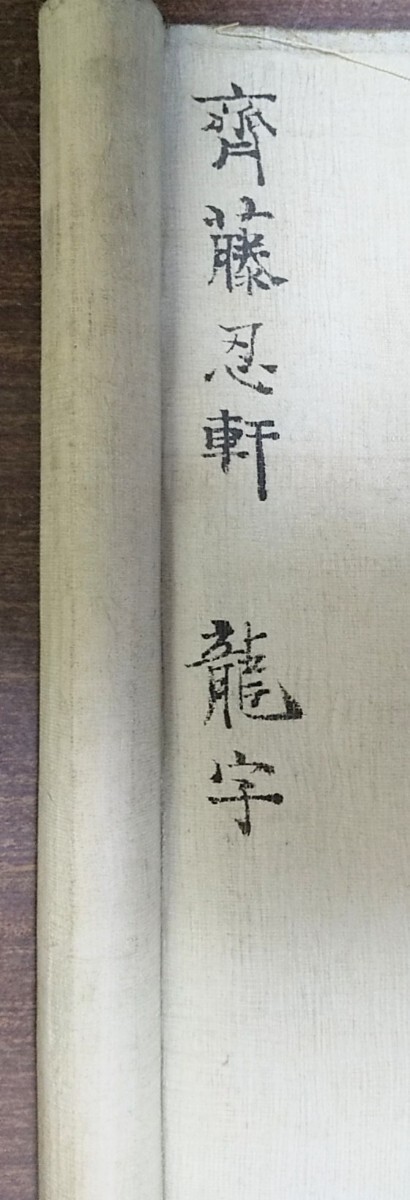 齊藤忍軒 龍字